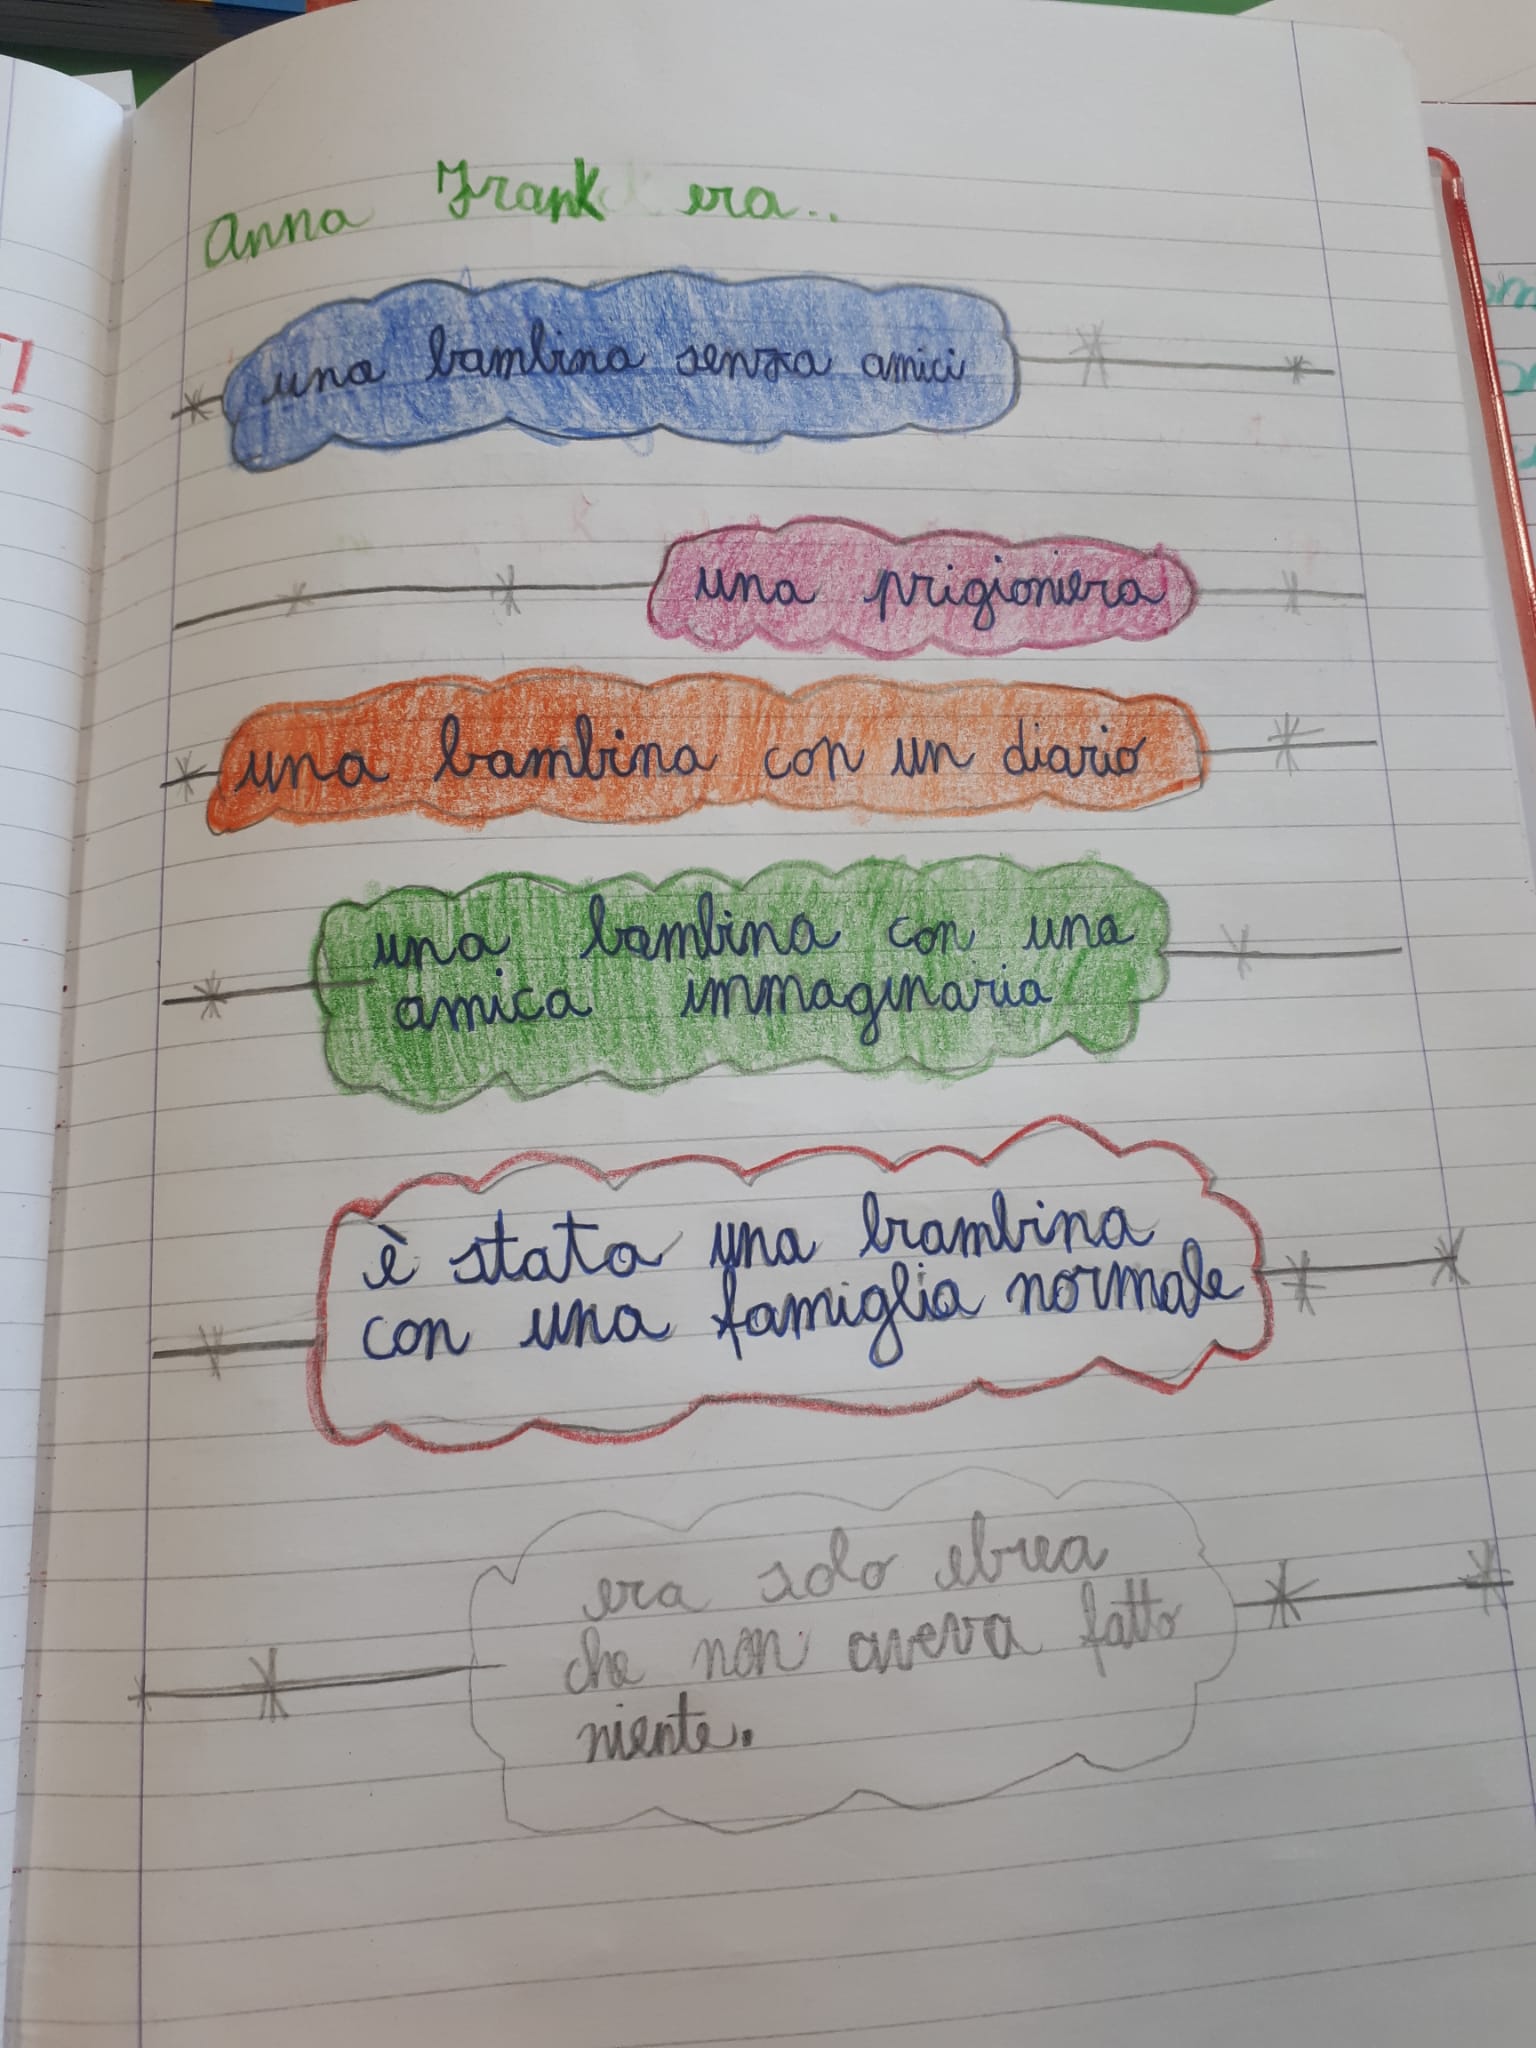 Anna Frank era..
una bambina senza amici
una prigioniera
una bambina con un diario
una bambina con una
amica immaginaria
è stata una brambina
con una famiglia normale
era solo ebrea
che non aveva fatto
niente.